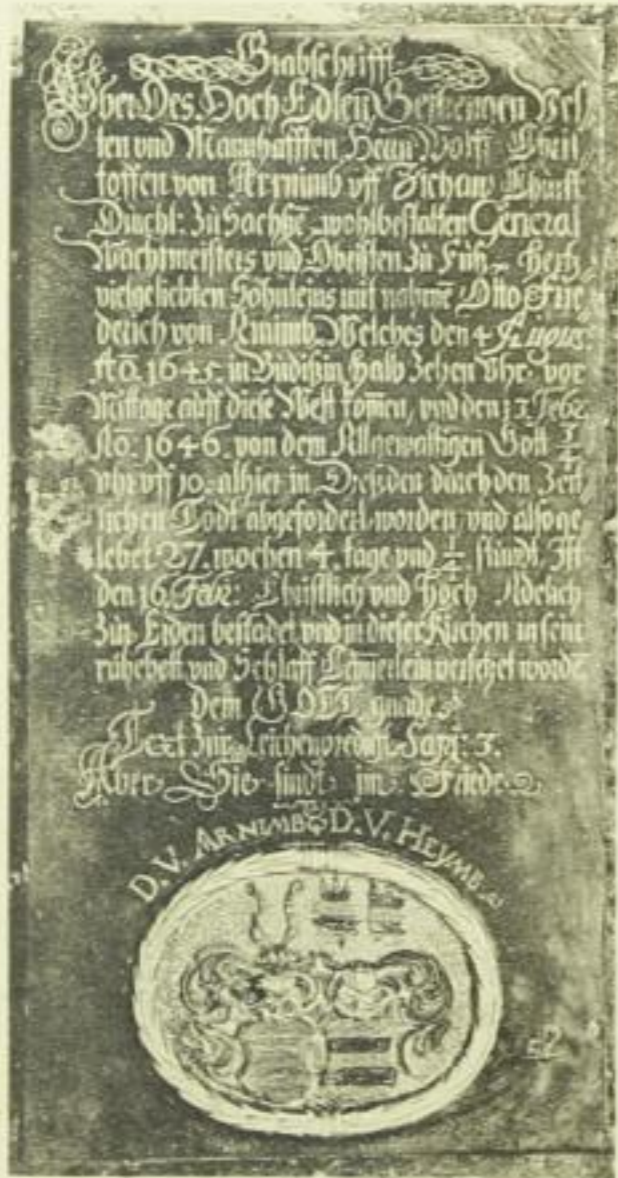 Grabschrifft
Uber Des. Hoch Edlen Gestrengen Vesten
ten vnd Mannhafften Herrn Wolff Christ
toffen von Arnimb vff Zichaw Churfl
Durchl: Zu Sachße wohlbestalten General
Wachtmeisters vnd Obristen Zu Fuß
vielgeliebten Söhnleins mit nahme Otto Frie
derich von Arnimb. Welches den 4 Augus:
Aō. 1645. in Budißin halb Zehen Vhr. vor
Mittage auff diese Welt komen, vnd den 13 Febr.
Aō. 1646. von dem Allgewaltigen Gott 3/4
vhr vff 10. alhier in Dreßden durch den Zeit
lichen Todt abgefordert worden vnd also ge
lebet 27. wochen 4. tage vnd 1/4. stundt. Ist
den 16. Febr: Christlich vnd Hoch Adelich
Zur Erden bestadet vnd in dieser Kirchen in sein
ruhebett vnd Schlaff Cämerlein versetzet worde
dem GOTT gnade
Text Zur Leichenpredigt. Sapi: 3.
Aber Sie sindt im Friede
D. V. ARNIMB D. V. HEYMB
52